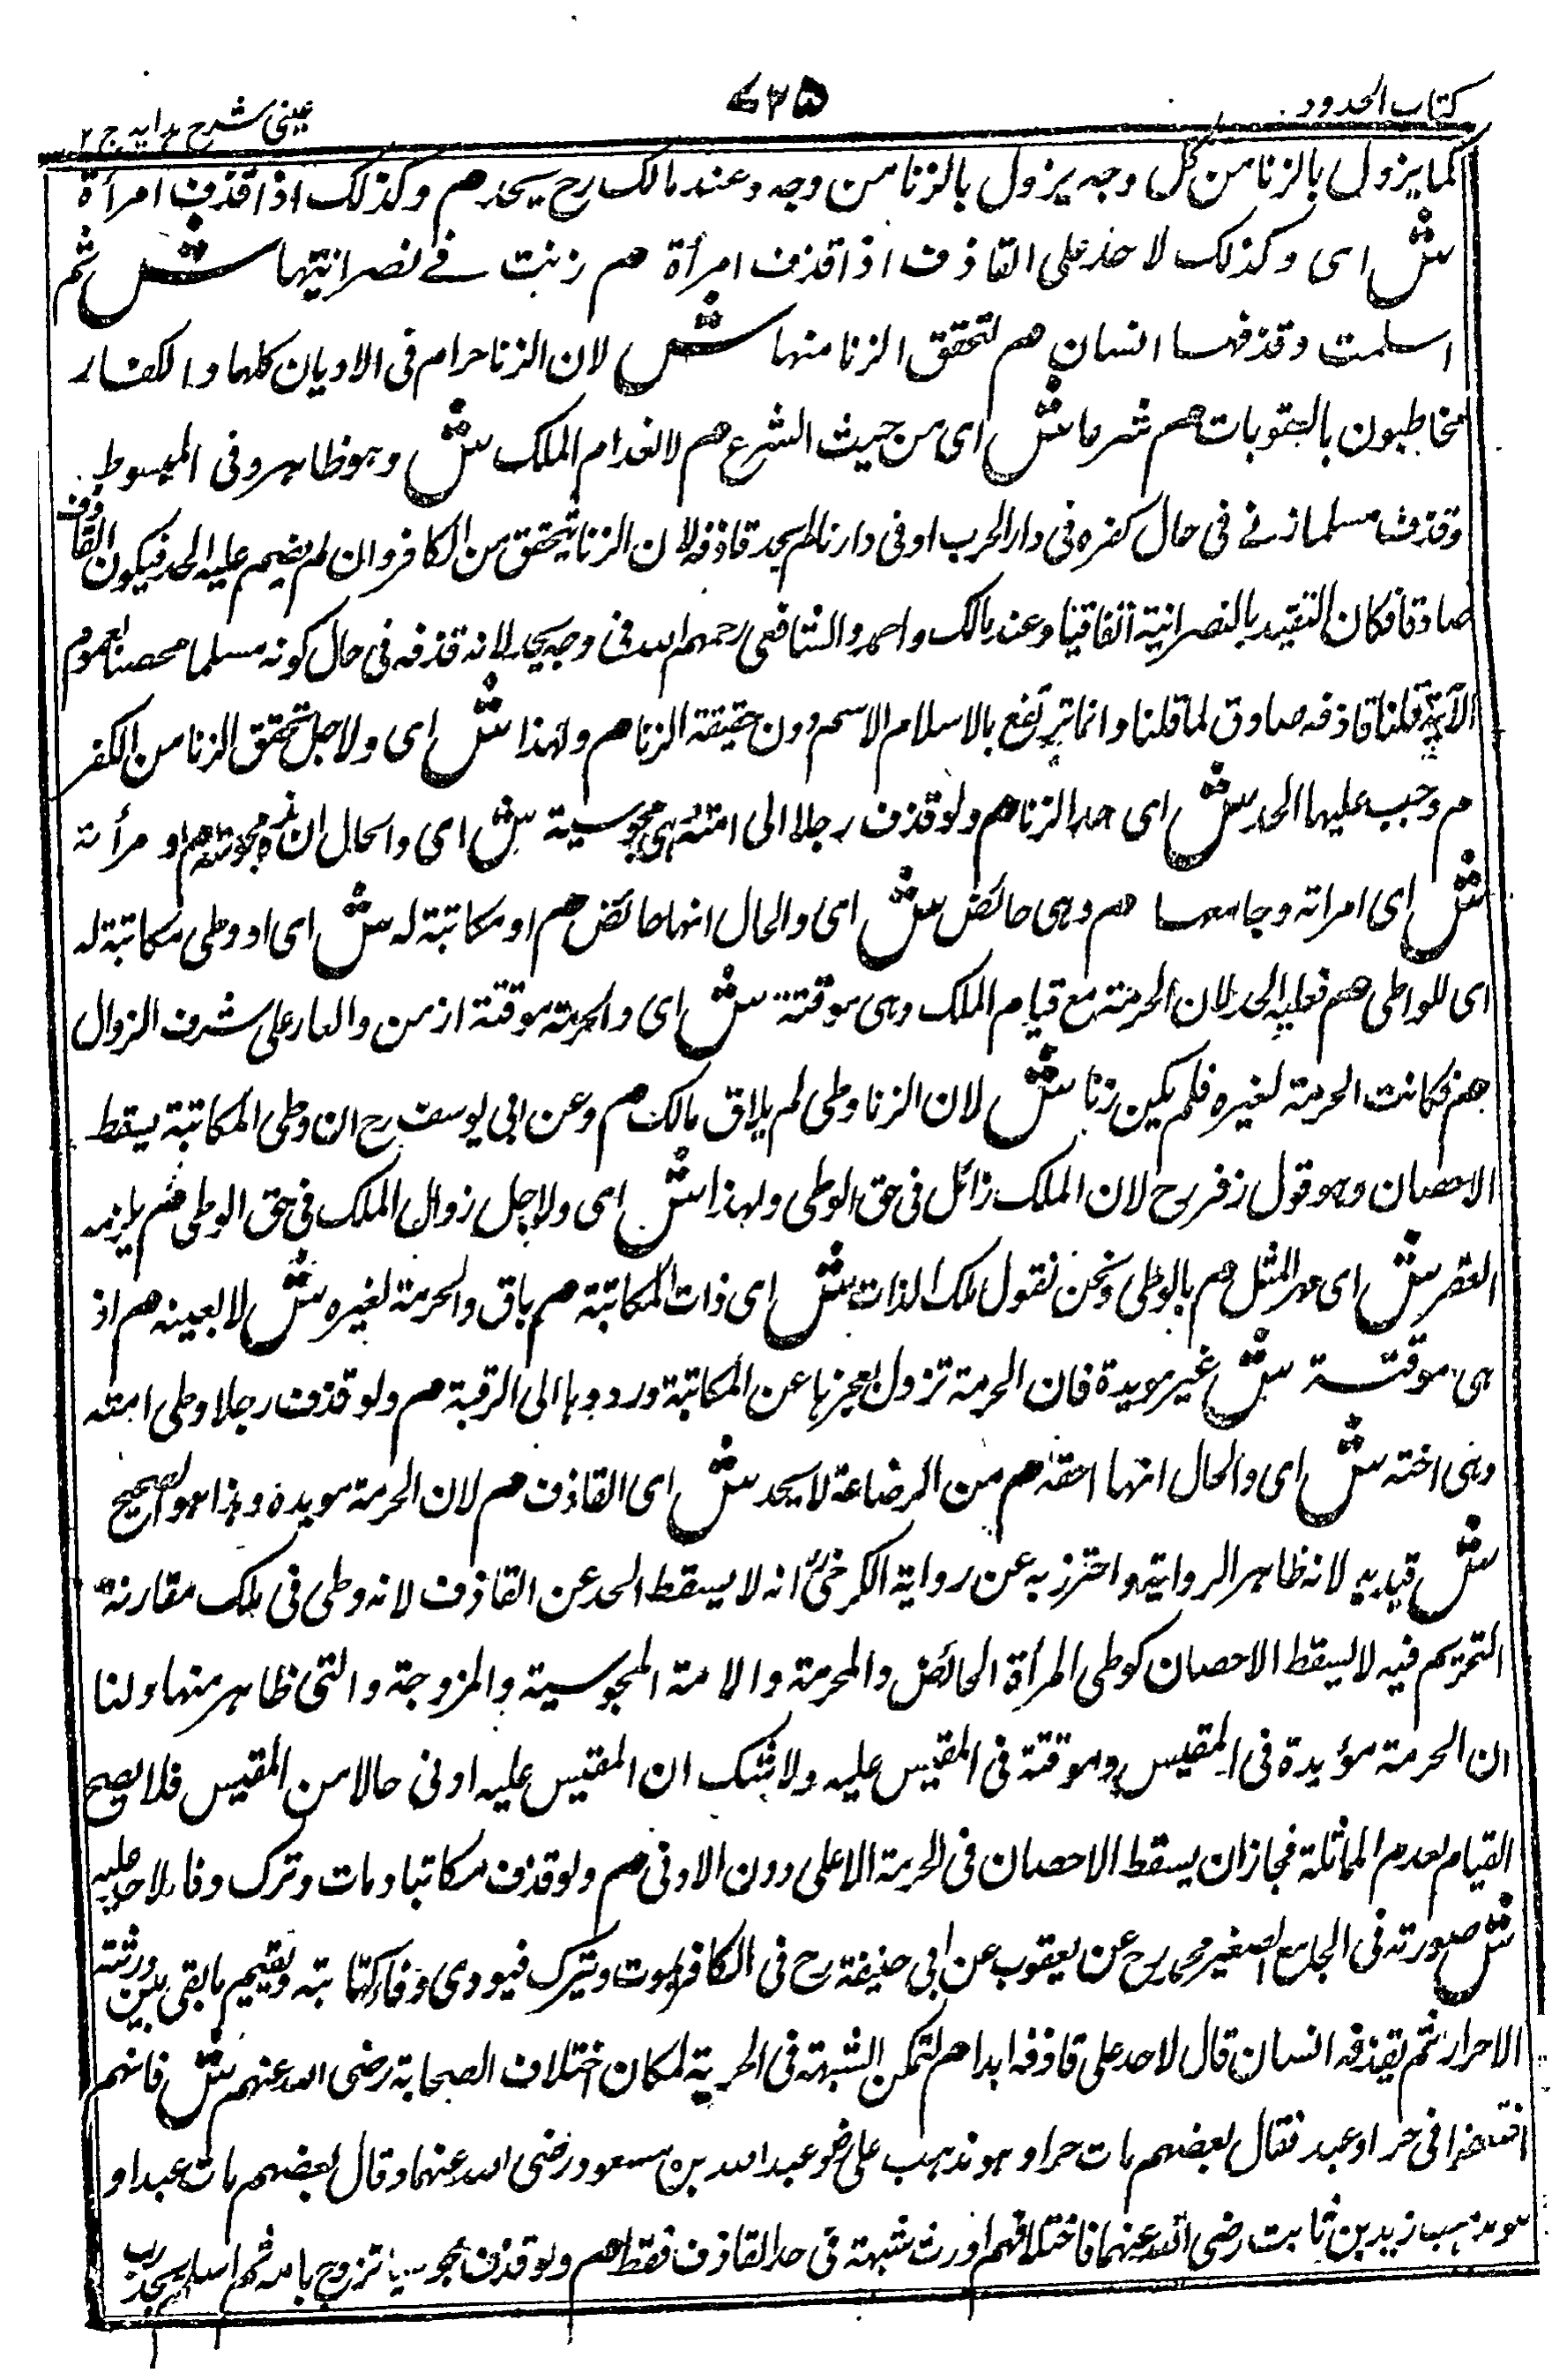 كتاب الحدود
٧٢٥
عینی شرح ہدایہ ج ٢
كما يزول بالزنا من كل وجه يزول بالزنا من وجه وعند مالك رح يحد هم وكذلك اذا قذف امرأة
ش اى وكذلك لا حد على القاذف اذا قذف امرأة هم زنت فے نصرانيتها ش ثم
اسلمت وقذفها انسان هم لتحقق الزنا منها ش لان الزنا حرام فى الاديان كلها والكفار
مخاطبون بالعقوبات هم شرعا ش اى من حيث الشرع هم لانعدام الملك ش وهو ظاهر وفى المبسوط
وقذف مسلما زنے فى حال كفره فى دار الحرب او فى دارنا لم يحد قاذفه لان الزنا يتحقق من الكافر وان لم يقم عليه الحد فيكون القاذف
صادقا فكان التقييد بالنصرانية اتفاقيا وعند مالك واحمد والشافعى رحمهم الله فى وجه يحد لانه قذفه فى حال كونه مسلما محصنا لعموم
الآية قلنا قاذفه صادق لما قلنا وانما يرتفع بالاسلام الاسم دون حقيقة الزنا هم ولهذا ش اى ولاجل تحقق الزنا من الكفر
م وجب عليها الحد ش اى حد الزنا هم ولو قذف رجلا اتى امته وهى مجوسية ش اى والحال ان هذه مجوسية هم او مرأته
ش اى امراته وجامعها هم وهى حائض ش اى والحال انها حائض هم او مكاتبة له ش اى او وطى مكاتبة له
اى للواطى هم فعليه الحد لان الحرمة مع قيام الملك وهى موقتة ش اى والحرمة موقتة از من والعار على شرف الزوال
هم فكانت الحرمة لغيره فلم يكن زنا ش لان الزنا وطى لم يلاق مالك هم وعن ابى يوسف رح ان وطى المكاتبة يسقط
الاحصان وهو قول زفر رح لان الملك زائل فى حق الوطى ولهذا ش اى ولاجل زوال الملك فى حق الوطى هم يلزمه
العقر ش اى مهر المثل هم بالوطى ونحن نقول ملك الذات ش اى ذات المكاتبة هم باق والحرمة لغيره ش لا لعينه هم اذ
هى موقتة ش غير موبدة فان الحرمة تزول بعجزها عن المكاتبة وردوها الى الرقبة هم ولو قذف رجلا وطى امته
وهى اخته ش اى والحال انها اخته هم من الرضاعة لا يحد ش اى القاذف هم لان الحرمة موبدة وهذا هو الصحيح
ش قيد به لانه ظاهر الرواية واحترز به عن رواية الكرخىؒ انه لا يسقط الحد عن القاذف لانه وطى فى ملك مقارنة
التحريم فيه لا يسقط الاحصان كوطى المرأة الحائض والمحرمة والامة المجوسية والمزوجة والتى ظاهر منها ولنا
ان الحرمة مؤبدة فى المقيس وموقتة فى المقيس عليه ولا شك ان المقيس عليه ادنى حالا من المقيس فلا يصح
القيام لعدم المماثلة فجاز ان يسقط الاحصان فى الحرمة الاعلى دون الادنى هم ولو قذف مكاتبا ومات وترك وفاء لا حد عليه
ش صورته فى الجامع الصغير محمد رح عن يعقوب عن ابى حنيفة رح فى الكافر يموت ويترك فيودى وفا كتابته ويقيم ما بقى بين ورثته
الاحرار ثم يقذفه انسان قال لا حد على قاذفه ابدا هم لتمكن الشبهة فى الحرية لمكان اختلاف الصحابة رضى الله عنهم ش فانهم
اختلفوا فى حر او عبد فقال بعضهم مات حرا وهو مذهب على رضو عبد الله بن مسعود رضى الله عنهما وقال بعضهم مات عبدا و
هو مذهب زيد بن ثابت رضى الله عنهما فاختلافهم اورث شبهة فى حد القاذف فقط هم ولو قذف مجوسيا تزوج بامه ثم اسلم يحد